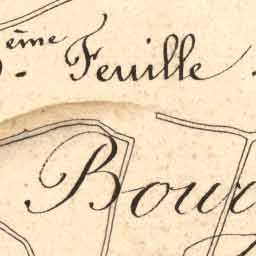 ème Feuille
Boug